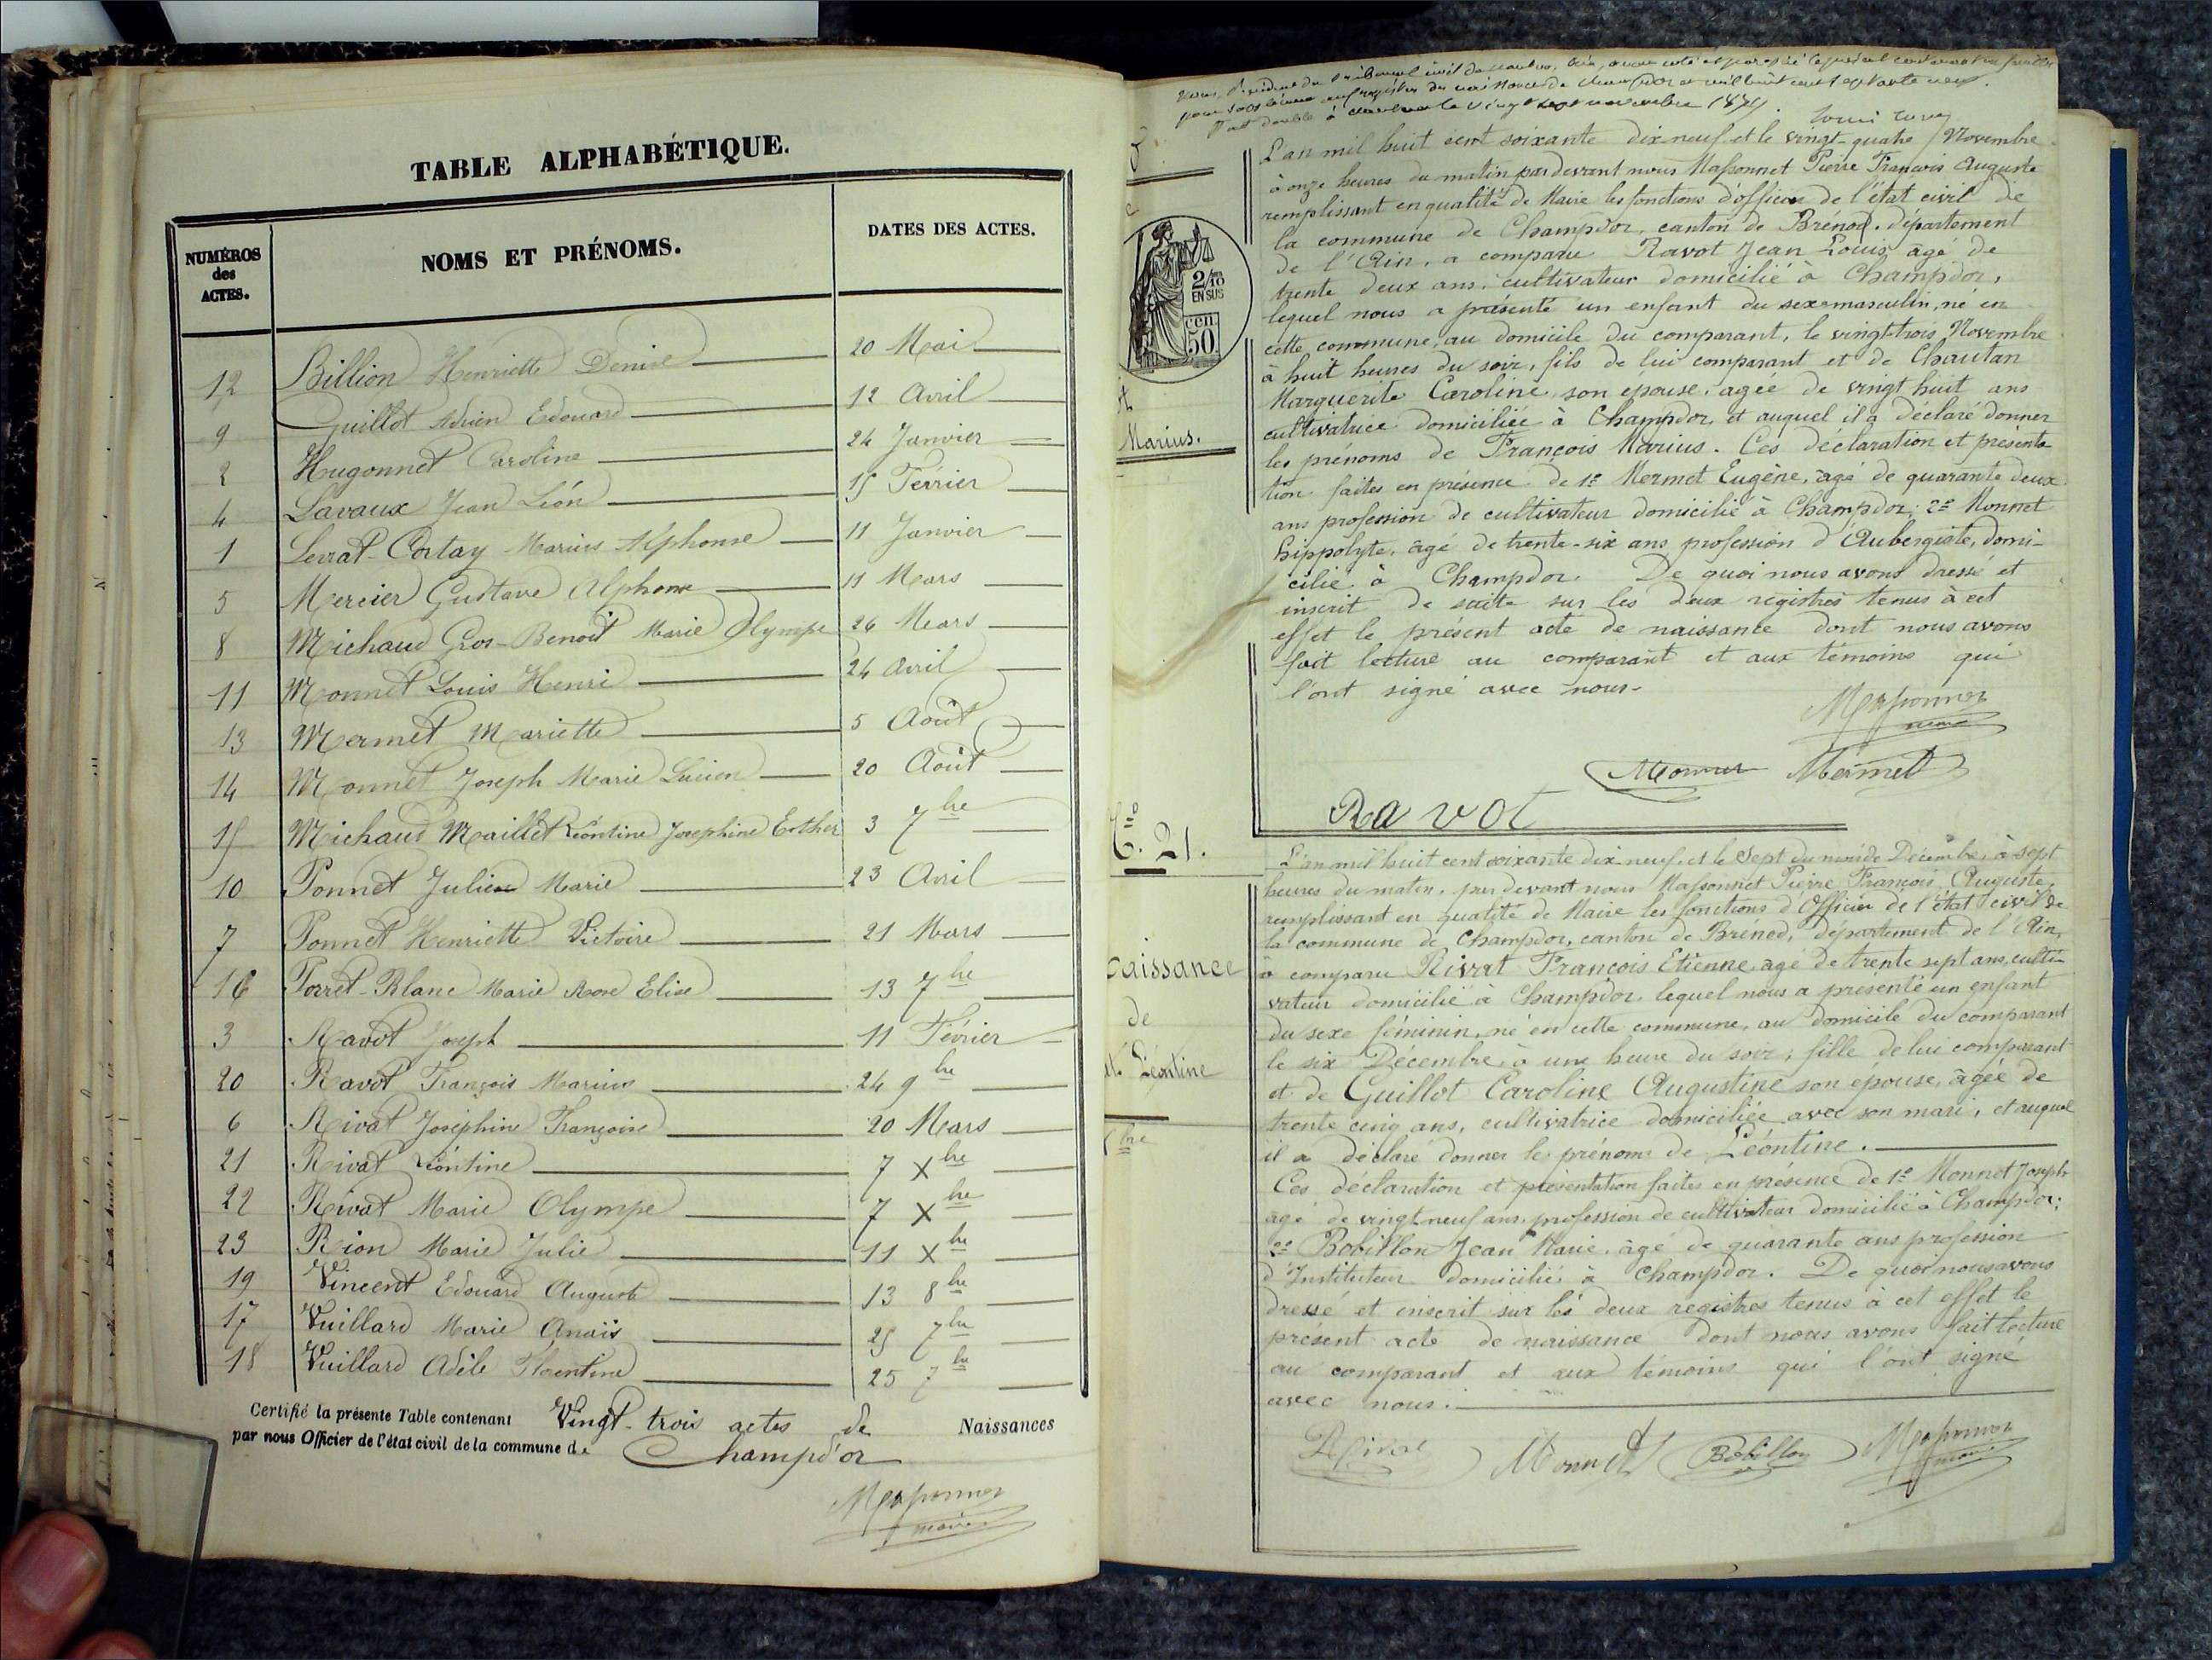 TABLE ALPHABÉTIQUE.
NUMÉROS des ACTES.
NOMS ET PRÉNOMS.
DATES DES ACTES.
12 Billion Henriette Denise 20 Mai
9 Guillot Adrien Edouard 12 Avril
2 Hugonnet Caroline 24 Janvier
4 Lavaux Jean Léon 15 Février
1 Levrat-Cortay Marius Alphonse 11 Janvier
5 Mercier Gustave Alphonse 11 Mars
8 Michaud Gros-Benoit Marie Olympe 26 Mars
11 Monnet Louis Henri 24 Avril
13 Mermet Mariette 5 Août
14 Monnet Joseph Marie Lucien 20 Août
15 Michaud Maillet Léontine Josephine Esther 3 7bre
10 Ponnet Julien Marie 23 Avril
7 Ponnet Henriette Victoire 21 Mars
16 Porret-Blanc Marie Rose Elise 13 7bre
3 Ravot Joseph 11 Février
20 Ravot François Marius 24 9bre
6 Rivat Joséphine Françoise 20 Mars
21 Rivat Léontine 7 Xbre
22 Rivat Marie Olympe 7 Xbre
23 Rion Marie Julie 11 Xbre
19 Vincent Edouard Auguste 13 8bre
17 Vuillard Marie Anaïs 25 7bre
18 Vuillard Adèle Florentine 25 7bre
Certifié la présente Table contenant Vingt-trois actes de Naissances
par nous Officier de l'état civil de la commune de Champd'or
Massonnet
maire
2/10
EN SUS
50
Marius.
L'an mil huit cent soixante dix neuf et le vingt-quatre Novembre
à onze heures du matin par devant nous Massonnet Pierre François Auguste
remplissant en qualité de Maire les fonctions d'officier de l'état civil de
la commune de Champdor, canton de Brénod, département
de l'Ain, a comparu Ravot Jean Louis âgé de
trente deux ans, cultivateur domicilié à Champdor,
lequel nous a présenté un enfant du sexe masculin, né en
cette commune, au domicile du comparant, le vingt-trois Novembre
à huit heures du soir, fils de lui comparant et de Chautan
Marguerite Caroline, son epouse, agée de vingt huit ans
cultivatrice domiciliée à Champdor, et auquel il a déclaré donner
les prénoms de François Marius. Ces déclaration et présenta
tion faites en présence de 1º Mermet Eugène, âgé de quarante deux
ans profession de cultivateur domicilié à Champdor; 2º Monnet
hippolyte, âgé de trente-six ans, profession d'Aubergiste, domi-
cilié à Champdor. De quoi nous avons dressé et
inscrit de suite sur les deux registres tenus à cet
effet le présent acte de naissance dont nous avons
fait lecture au comparant et aux témoins qui
l'ont signé avec nous.
Massonnet
maire
Monnet Mermet
Ravot
21.
aissance
de
Léontine
L'an mil huit cent soixante dix neuf, et le Sept du mois de Décembre, à sept
heures du matin, par devant nous Massonnet Pierre François Auguste,
remplissant en qualité de Maire les fonctions d'Officier de l'état civil de
la commune de Champdor, canton de Brénod, département de l'Ain,
a comparu Rivat François Etienne, âgé de trente sept ans, culti-
vateur domicilié à Champdor, lequel nous a présenté un enfant
du sexe féminin, né en cette commune, au domicile du comparant
le six Décembre, à une heure du soir, fille de lui comparant
et de Guillot Caroline Augustine son épouse, âgée de
trente cinq ans, cultivatrice domiciliée avec son mari, et auquel
il a déclaré donner les prénoms de Léontine.
Ces déclaration et présentation faites en présence de 1º Monnet Joseph
âgé de vingt neuf ans, profession de cultivateur domicilié à Champdor;
2º Bobillon Jean Marie, âgé de quarante ans profession
d'Instituteur domicilié à Champdor. De quoi nous avons
dressé et inscrit sur les deux registres tenus à cet effet le
présent acte de naissance dont nous avons fait lecture
au comparant et aux témoins qui l'ont signé
avec nous.
Rivat Monnet Bobillon Massonnet
maire